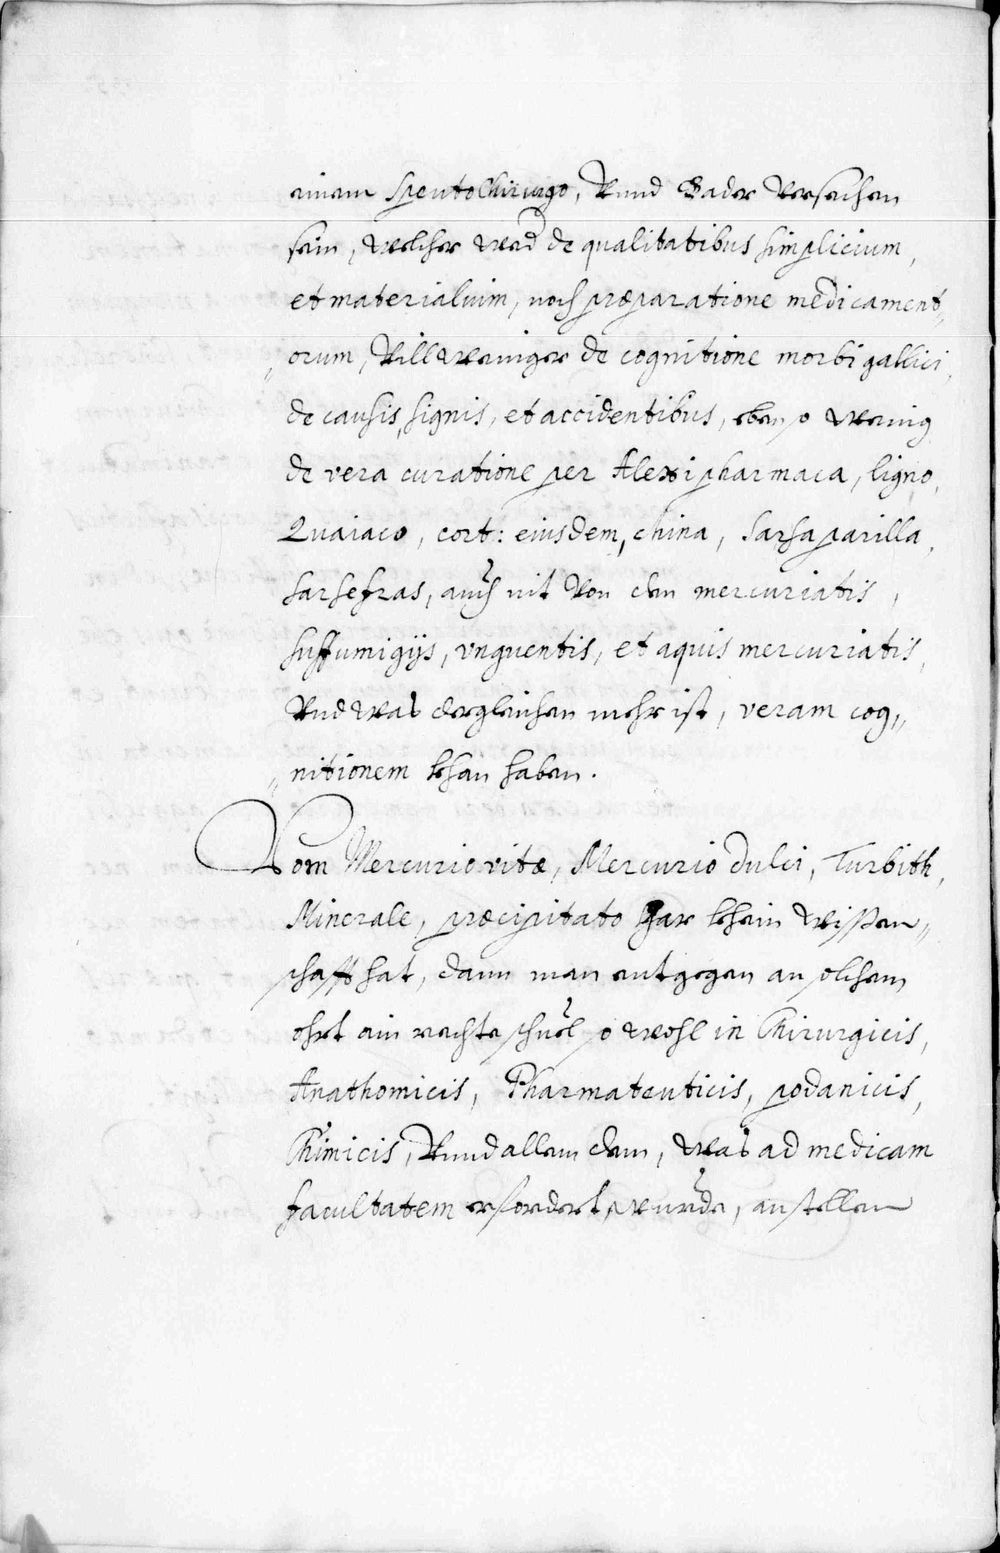 einem Speutochirurgo, Vnnd Bader Versechen
sein, welcher wed de qualitatibus simplicium,
et materialium, noch præparatione medicament„
„orum, Vill weniger de cognitione morbi gallici,
de causis, signis, et accidentibus, eben so wenig
de vera curatione per Alexipharmaca, ligno,
Quaiaco, cort: eiusdem, china, Sarsaparilla,
sarsefras, auch nit Von den mercuriatis,
suffumigijs, vnguentis, et aquis mercuriatis,
Vnd was dergleichen mehr ist, veram cog„
„nitionem khan haben.
Vom Mercurio vitæ, Mercurio dulci, Turbith,
Minerale, præcipitato gar khein wissen„
schafft hat, dann man entgegen an solchem
ohrt ein rechte schuel so wohl in Chirurgicis,
Anathomicis, Pharmateuticis, podanicis,
Chimicis, Vnnd allem dem, was ad medicam
facultatem erfordert wurde, anstellen